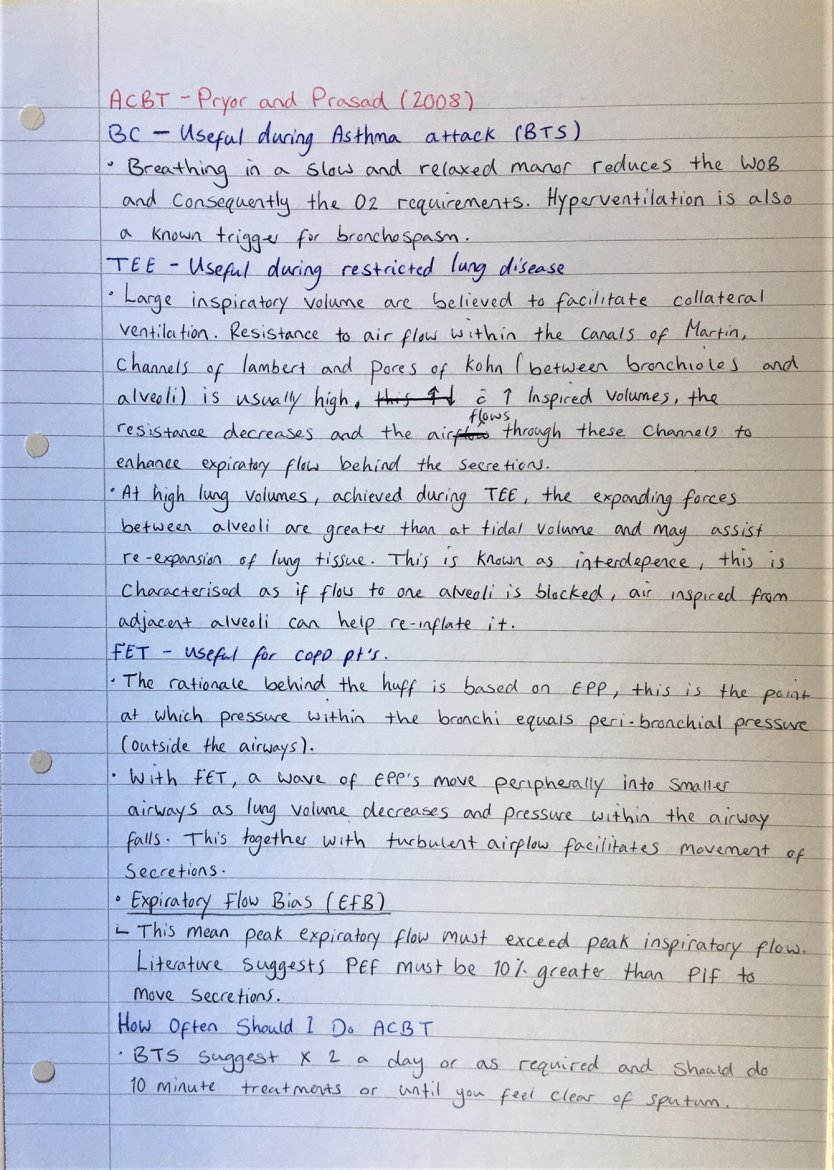 ACBT - Pryor and Prasad (2008)
BC - Useful during Asthma attack (BTS)
• Breathing in a slow and relaxed manor reduces the WOB
and consequently the O2 requirements. Hyperventilation is also
a known trigger for bronchospasm.
TEE - Useful during restricted lung disease
• Large inspiratory volume are believed to facilitate collateral
ventilation. Resistance to air flow within the canals of Martin,
channels of lambert and pores of Kohn (between bronchioles and
alveoli) is usually high, this ↑↓ c̄ ↑ Inspired volumes, the
flows
resistance decreases and the airflow through these channels to
enhance expiratory flow behind the secretions.
• At high lung volumes, achieved during TEE, the expanding forces
between alveoli are greater than at tidal volume and may assist
re-expansion of lung tissue. This is known as interdepence, this is
characterised as if flow to one alveoli is blocked, air inspired from
adjacent alveoli can help re-inflate it.
FET - useful for COPD pt's.
• The rationale behind the huff is based on EPP, this is the point
at which pressure within the bronchi equals peri-bronchial pressure
(outside the airways).
• With FET, a wave of EPP's move peripherally into smaller
airways as lung volume decreases and pressure within the airway
falls. This together with turbulent airflow facilitates movement of
secretions.
• Expiratory Flow Bias (EFB)
∟ This mean peak expiratory flow must exceed peak inspiratory flow.
Literature suggests PEF must be 10% greater than PIF to
move secretions.
How Often Should I Do ACBT
• BTS suggest x 2 a day or as required and should do
10 minute treatments or until you feel clear of sputum.